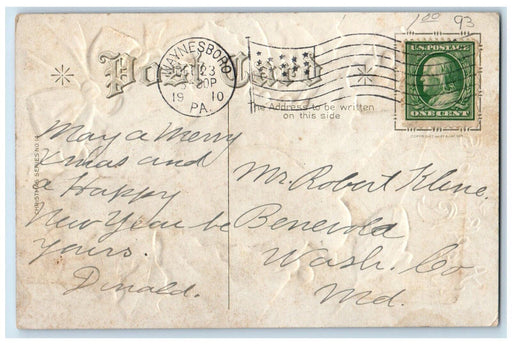 1.00 93
WAYNESBORO
23
30P
19 10
PA.
Post Card
U.S. POSTAGE
ONE CENT
The Address to be written
on this side
CHRISTMAS SERIES NO.
May a Merry
Xmas and
a Happy
New Year be
yours.
Donald.
Mr. Robert Kline.
Benevola
Wash. Co.
Md.